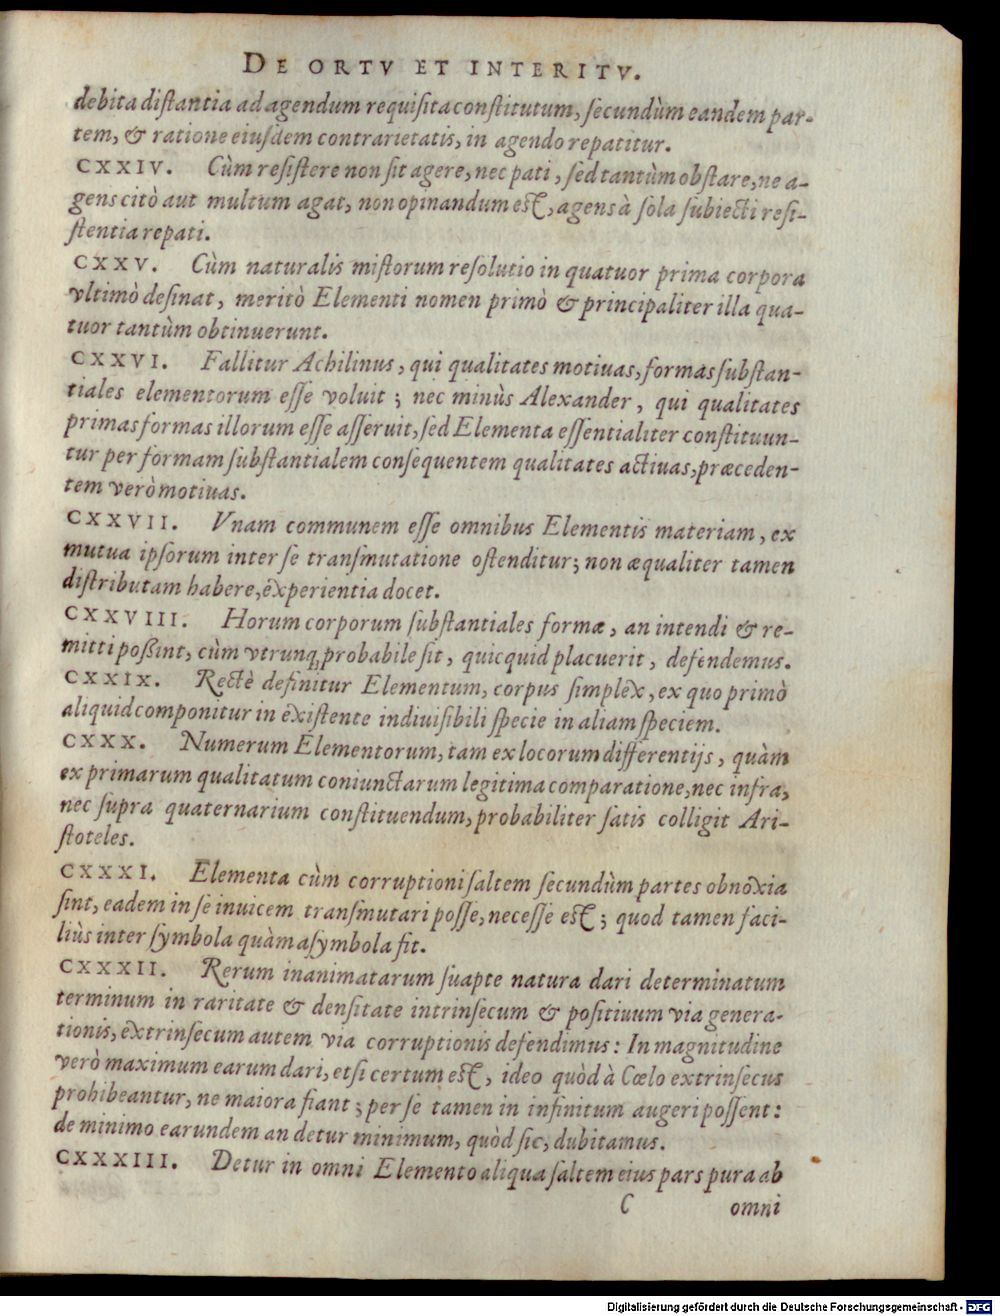 DE ORTV ET INTERITV.
debita distantia ad agendum requisita constitutum, secundùm eandem par-
tem, & ratione eiusdem contrarietatis, in agendo repatitur.
CXXIV. Cùm resistere non sit agere, nec pati, sed tantùm obstare, ne a-
gens citò aut multum agat, non opinandum est, agens à sola subiecti resi-
stentia repati.
CXXV. Cùm naturalis mistorum resolutio in quatuor prima corpora
vltimò desinat, meritò Elementi nomen primò & principaliter illa qua-
tuor tantùm obtinuerunt.
CXXVI. Fallitur Achilinus, qui qualitates motiuas, formas substan-
tiales elementorum esse voluit; nec minùs Alexander, qui qualitates
primas formas illorum esse asseruit, sed Elementa essentialiter constituun-
tur per formam substantialem consequentem qualitates actiuas, præceden-
tem verò motiuas.
CXXVII. Vnam communem esse omnibus Elementis materiam, ex
mutua ipsorum inter se transmutatione ostenditur; non æqualiter tamen
distributam habere, experientia docet.
CXXVIII. Horum corporum substantiales formæ, an intendi & re-
mitti poßint, cùm vtrunq; probabile sit, quicquid placuerit, defendemus.
CXXIX. Rectè definitur Elementum, corpus simplex, ex quo primò
aliquid componitur in existente indiuisibili specie in aliam speciem.
CXXX. Numerum Elementorum, tam ex locorum differentijs, quàm
ex primarum qualitatum coniunctarum legitima comparatione, nec infra,
nec supra quaternarium constituendum, probabiliter satis colligit Ari-
stoteles.
CXXXI. Elementa cùm corruptioni saltem secundùm partes obnoxia
sint, eadem in se inuicem transmutari posse, necesse est; quod tamen faci-
liùs inter symbola quàm asymbola fit.
CXXXII. Rerum inanimatarum suapte natura dari determinatum
terminum in raritate & densitate intrinsecum & positiuum via genera-
tionis, extrinsecum autem via corruptionis defendimus: In magnitudine
verò maximum earum dari, etsi certum est, ideo quòd à Cœlo extrinsecus
prohibeantur, ne maiora fiant; per se tamen in infinitum augeri possent:
de minimo earundem an detur minimum, quòd sic, dubitamus.
CXXXIII. Detur in omni Elemento aliqua saltem eius pars pura ab
C omni
Digitalisierung gefördert durch die Deutsche Forschungsgemeinschaft - DFG